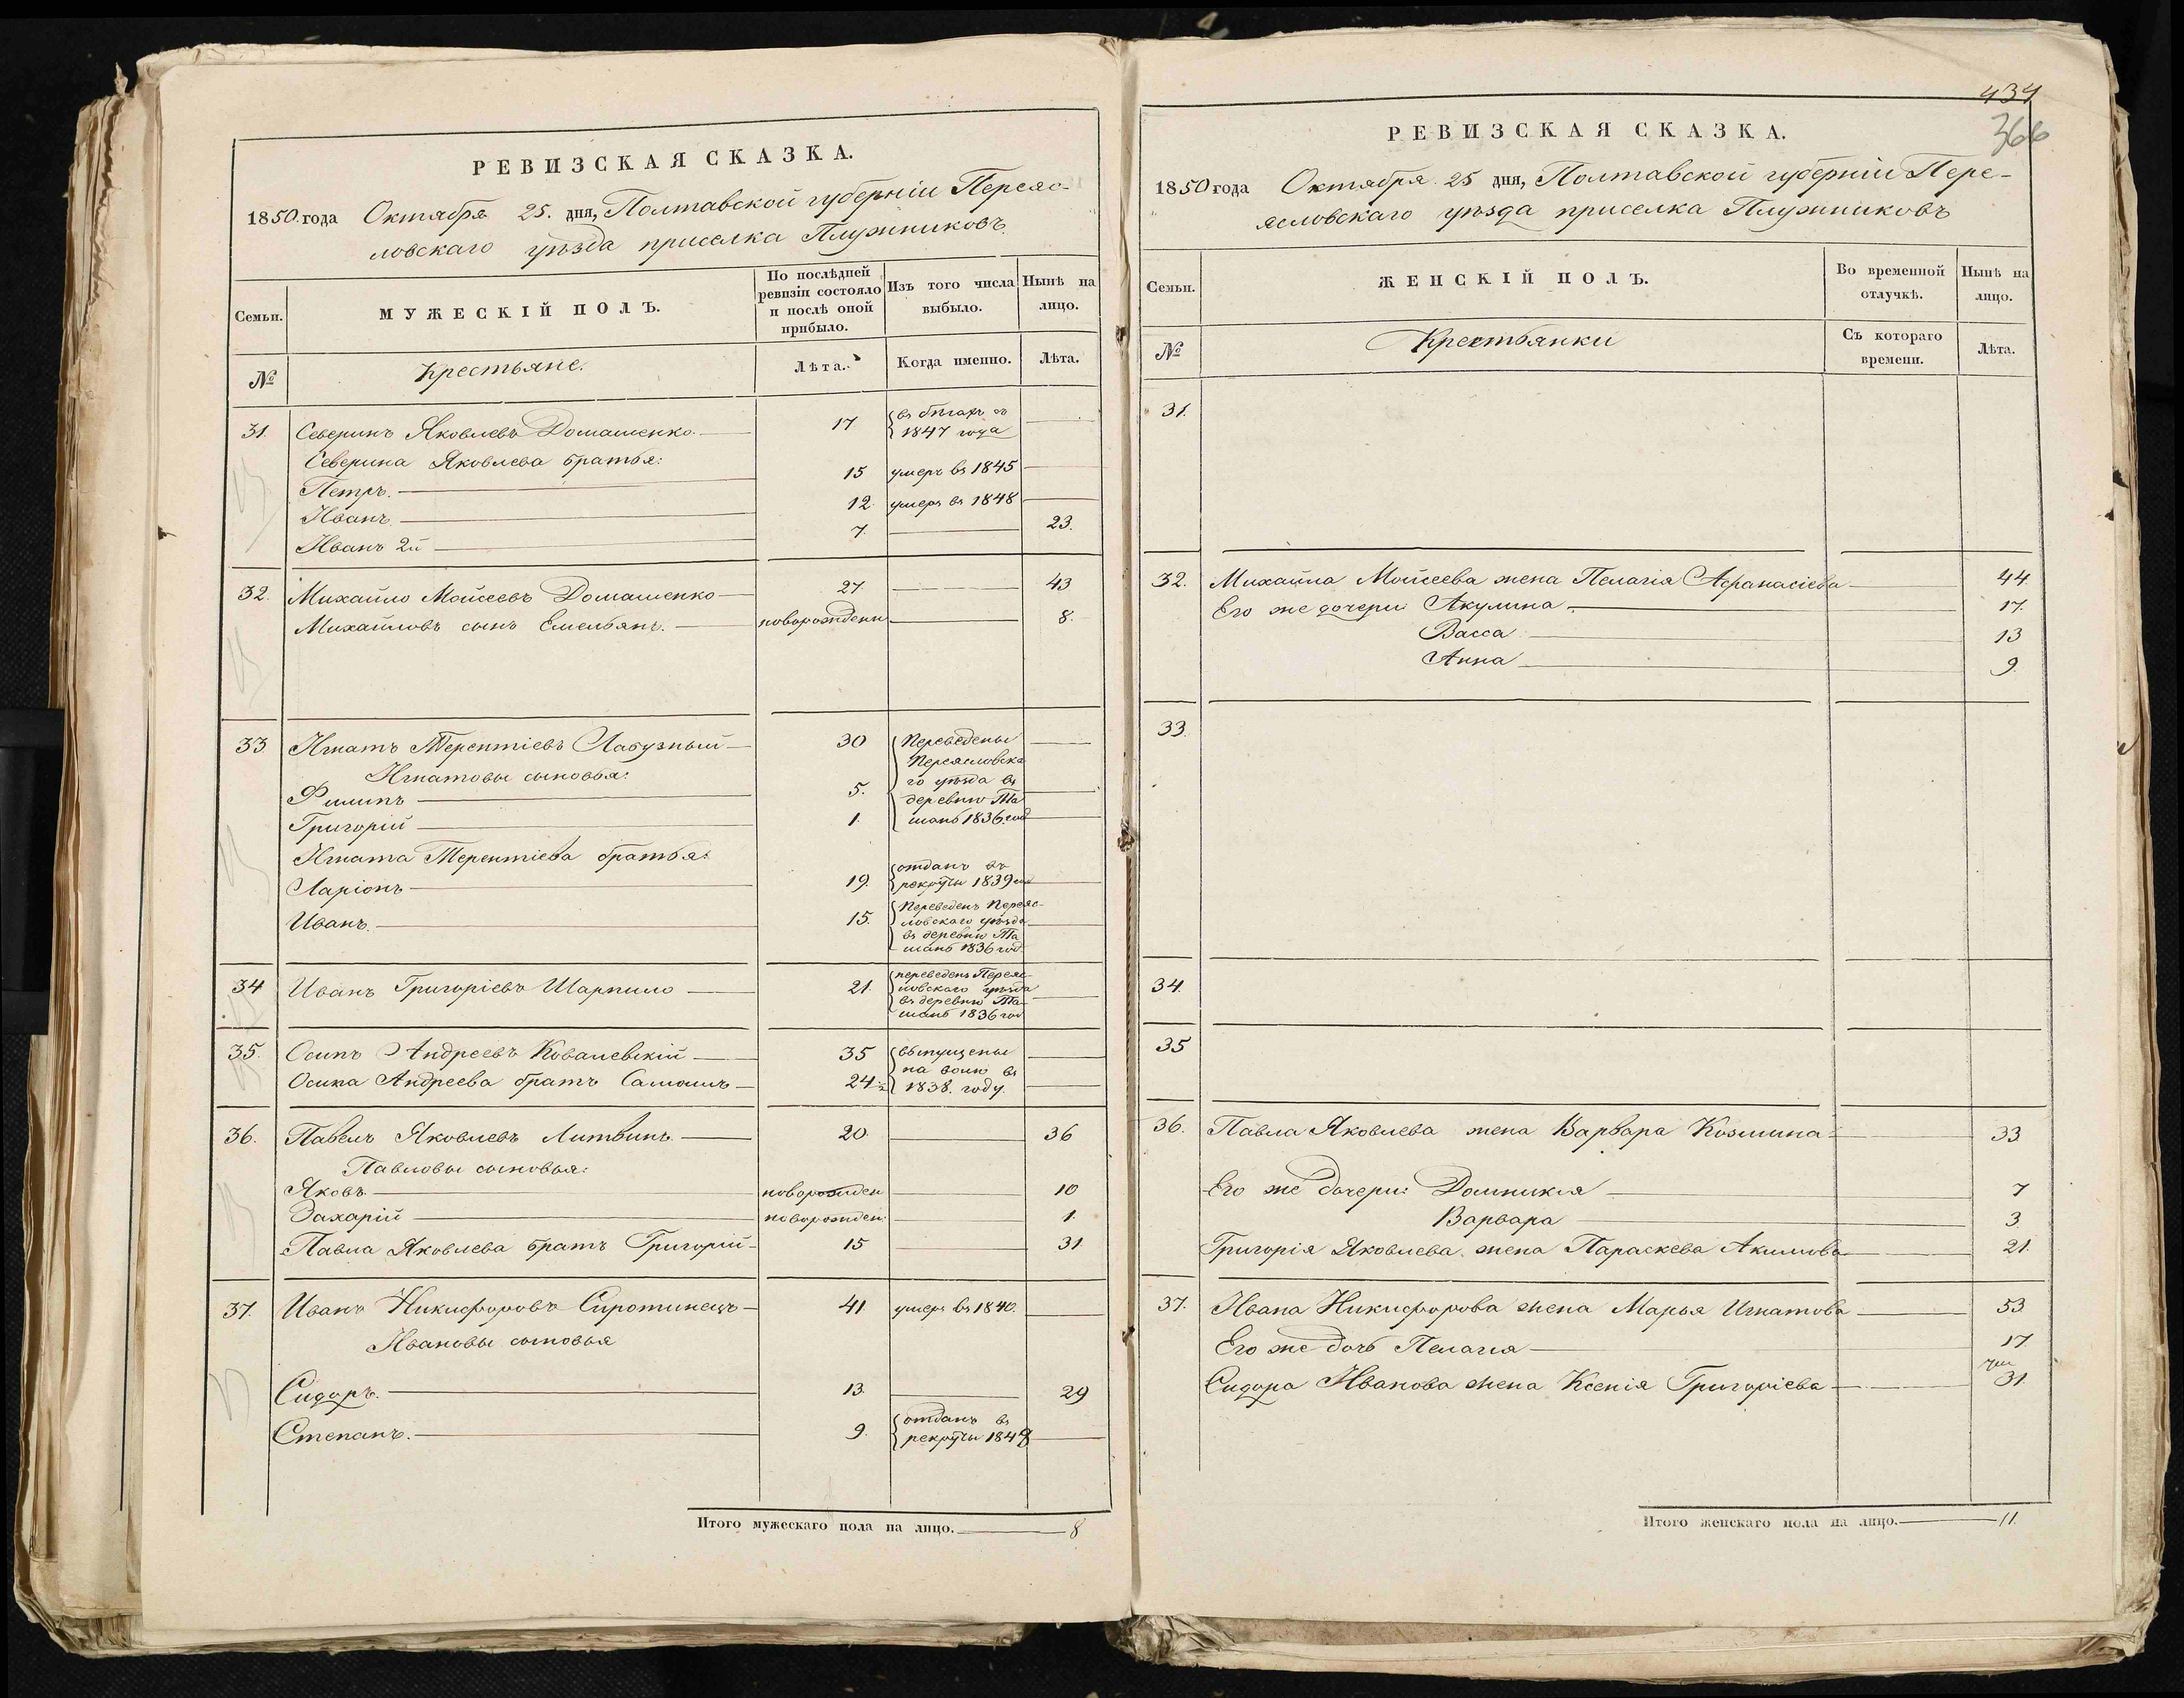 РЕВИЗСКАЯ СКАЗКА.
1850 года Октября 25. дня, Полтавской губерніи Переяс-
ловскаго уѣзда приселка Плужниковъ.
Семьи.
МУЖЕСКІЙ ПОЛЪ.
По послѣдней ревизіи состояло и послѣ оной прибыло.
Изъ того числа выбыло.
Нынѣ на лицо.
№
Крестьяне.
Лѣта.
Когда именно.
Лѣта.
31. Северинъ Яковлевъ Домашенко 17 въ бѣгахъ съ
1847 года
Северина Яковлева братья:
Петръ. 15 умеръ въ 1845
Иванъ. 12. умеръ въ 1848
Иванъ 2й 7. 23.
32. Михайло Мойсеевъ Домашенко 27. 43
Михайловъ сынъ Емельянъ. новорожден 8.
33 Игнатъ Терентіевъ Лабузный 30 Переведены
Игнатовы сыновья: Переясловска
го уѣзда въ
Филипъ 5. деревню Та
Григорій 1. шань 1836 год
Игната Терентіева братья:
Ларіонъ 19. отданъ въ
рекруты 1839 год
Иванъ. 15. Переведенъ Переяс-
ловскаго уѣзда
въ деревню Та
шань 1836 год.
34 Иванъ Григоріевъ Шарпило 21. переведенъ Переяс-
ловскаго уѣзда
въ деревню Та-
шань 1836 год
35. Осипъ Андреевъ Ковалевскій 35 выпущены
на волю въ
Осипа Андреева братъ Самойлъ 24 1838. году.
36. Павелъ Яковлевъ Литвинъ. 20. 36
Павловы сыновья:
Яковъ. новорожден 10
Захарій новорожден: 1.
Павла Яковлева братъ Григорій 15 31
37. Иванъ Никифоровъ Сиротинецъ 41. умеръ въ 1840.
Ивановы сыновья
Сидоръ. 13. 29
Степанъ. 9. отданъ въ
рекруты 1848
Итого мужескаго пола на лицо. 8
434
366
РЕВИЗСКАЯ СКАЗКА.
1850 года Октября 25 дня, Полтавской губерніи Пере-
ясловскаго уѣзда приселка Плужниковъ
Семьи.
ЖЕНСКІЙ ПОЛЪ.
Во временной отлучкѣ.
Нынѣ на лицо.
№
Крестьянки
Съ котораго времени.
Лѣта.
31.
32. Михайла Мойсеева жена Пелагія Афанасіева 44.
Его же дочери: Акулина 17.
Васса 13
Анна 9.
33.
34.
35
36. Павла Яковлева жена Варвара Козмина 33
Его же дочери: Домникія 7
Варвара 3.
Григорія Яковлева жена Параскева Акимова 21.
37. Ивана Никифорова жена Марья Игнатова 53.
Его же дочь Пелагія 17.
Сидора Иванова жена Ксенія Григоріева 31.
Итого женскаго пола на лицо. 11.